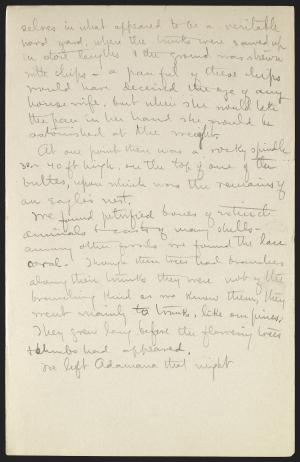 selves in what appeared to be a veritable
wood yard, when the trunks were sawed up
in stove lengths & the ground was strewn
with chips - a pan full of these chips
would have deceived the eye of any
housewife, but when she would take
the pan in her hand she would be
astonished at the weight.
At one point there was a rocky spindle
30 or 40 ft high, on the top of one of the
buttes, upon which was the remains of
an eagles nest.
We found petrified bones of extinct
animals & casts of many shells -
among other fossils we found the lace
coral. Though these trees had branches
along their trunks they were not of the
branching kind as we know them, they
went mainly to trunks, like our pines.
They grew long before the flowering trees
& shrubs had appeared.
We left Adamana that night